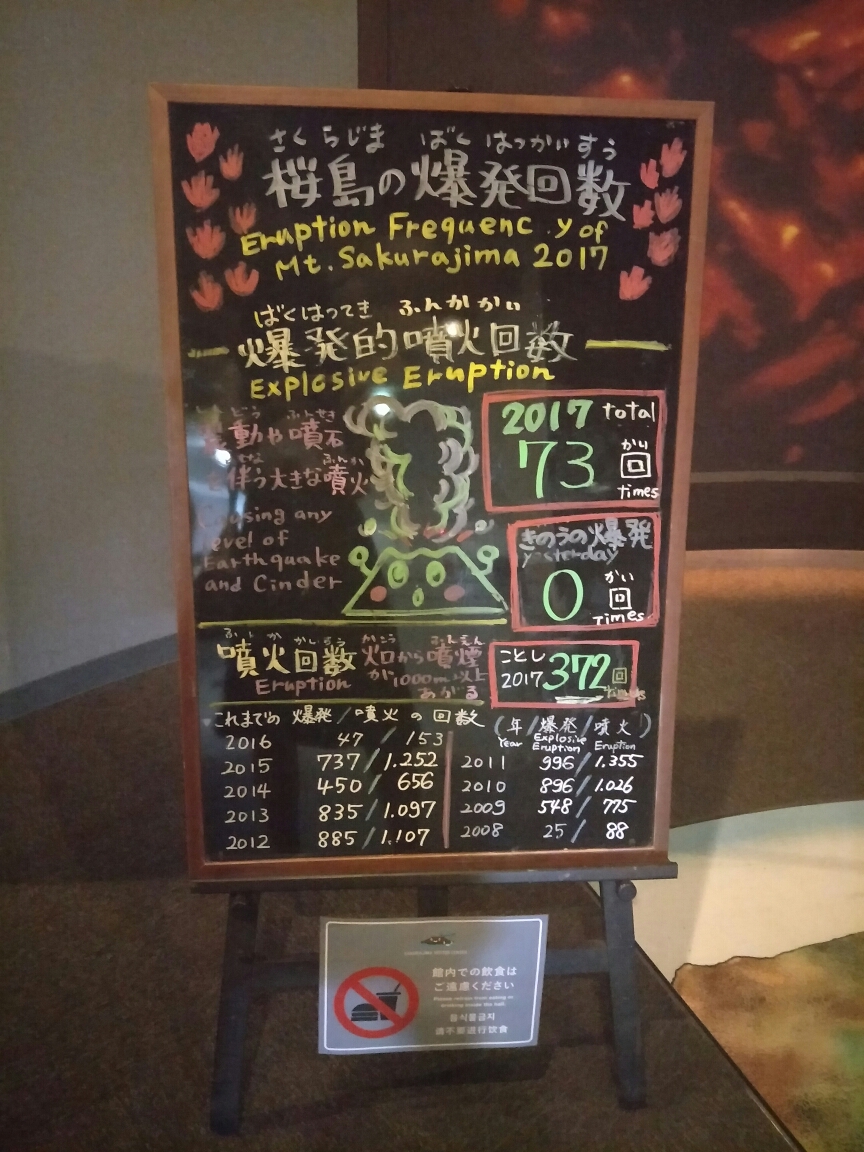 さくらじま ばくはつかいすう
桜島の爆発回数
Eruption Frequenc.y of
Mt. Sakurajima 2017
ばくはつてき ふんかかい
爆発的噴火回数
Explosive Eruption
どう ふんせき
動や噴石
ふんか
を伴う大きな噴火
Causing any
level of
Earthquake
and Cinder
2017 total
73 かい 回
times
きのうの爆発
yesterday
0 かい 回
Times
ふんか かいすう
噴火回数
Eruption
かこう ふんえん
火口から噴煙
が1000m以上
あがる
ことし
2017 372 回
times
これまでの 爆発/噴火 の 回数
2016 47 / 153
2015 737 / 1.252
2014 450 / 656
2013 835 / 1.097
2012 885 / 1.107
(年/爆発/噴火)
Year Explosive Eruption Eruption
2011 996 / 1.355
2010 896 / 1.026
2009 548 / 775
2008 25 / 88
館内での飲食は
ご遠慮ください
Please refrain from eating or
drinking inside the hall.
음식물금지
请不要进行饮食